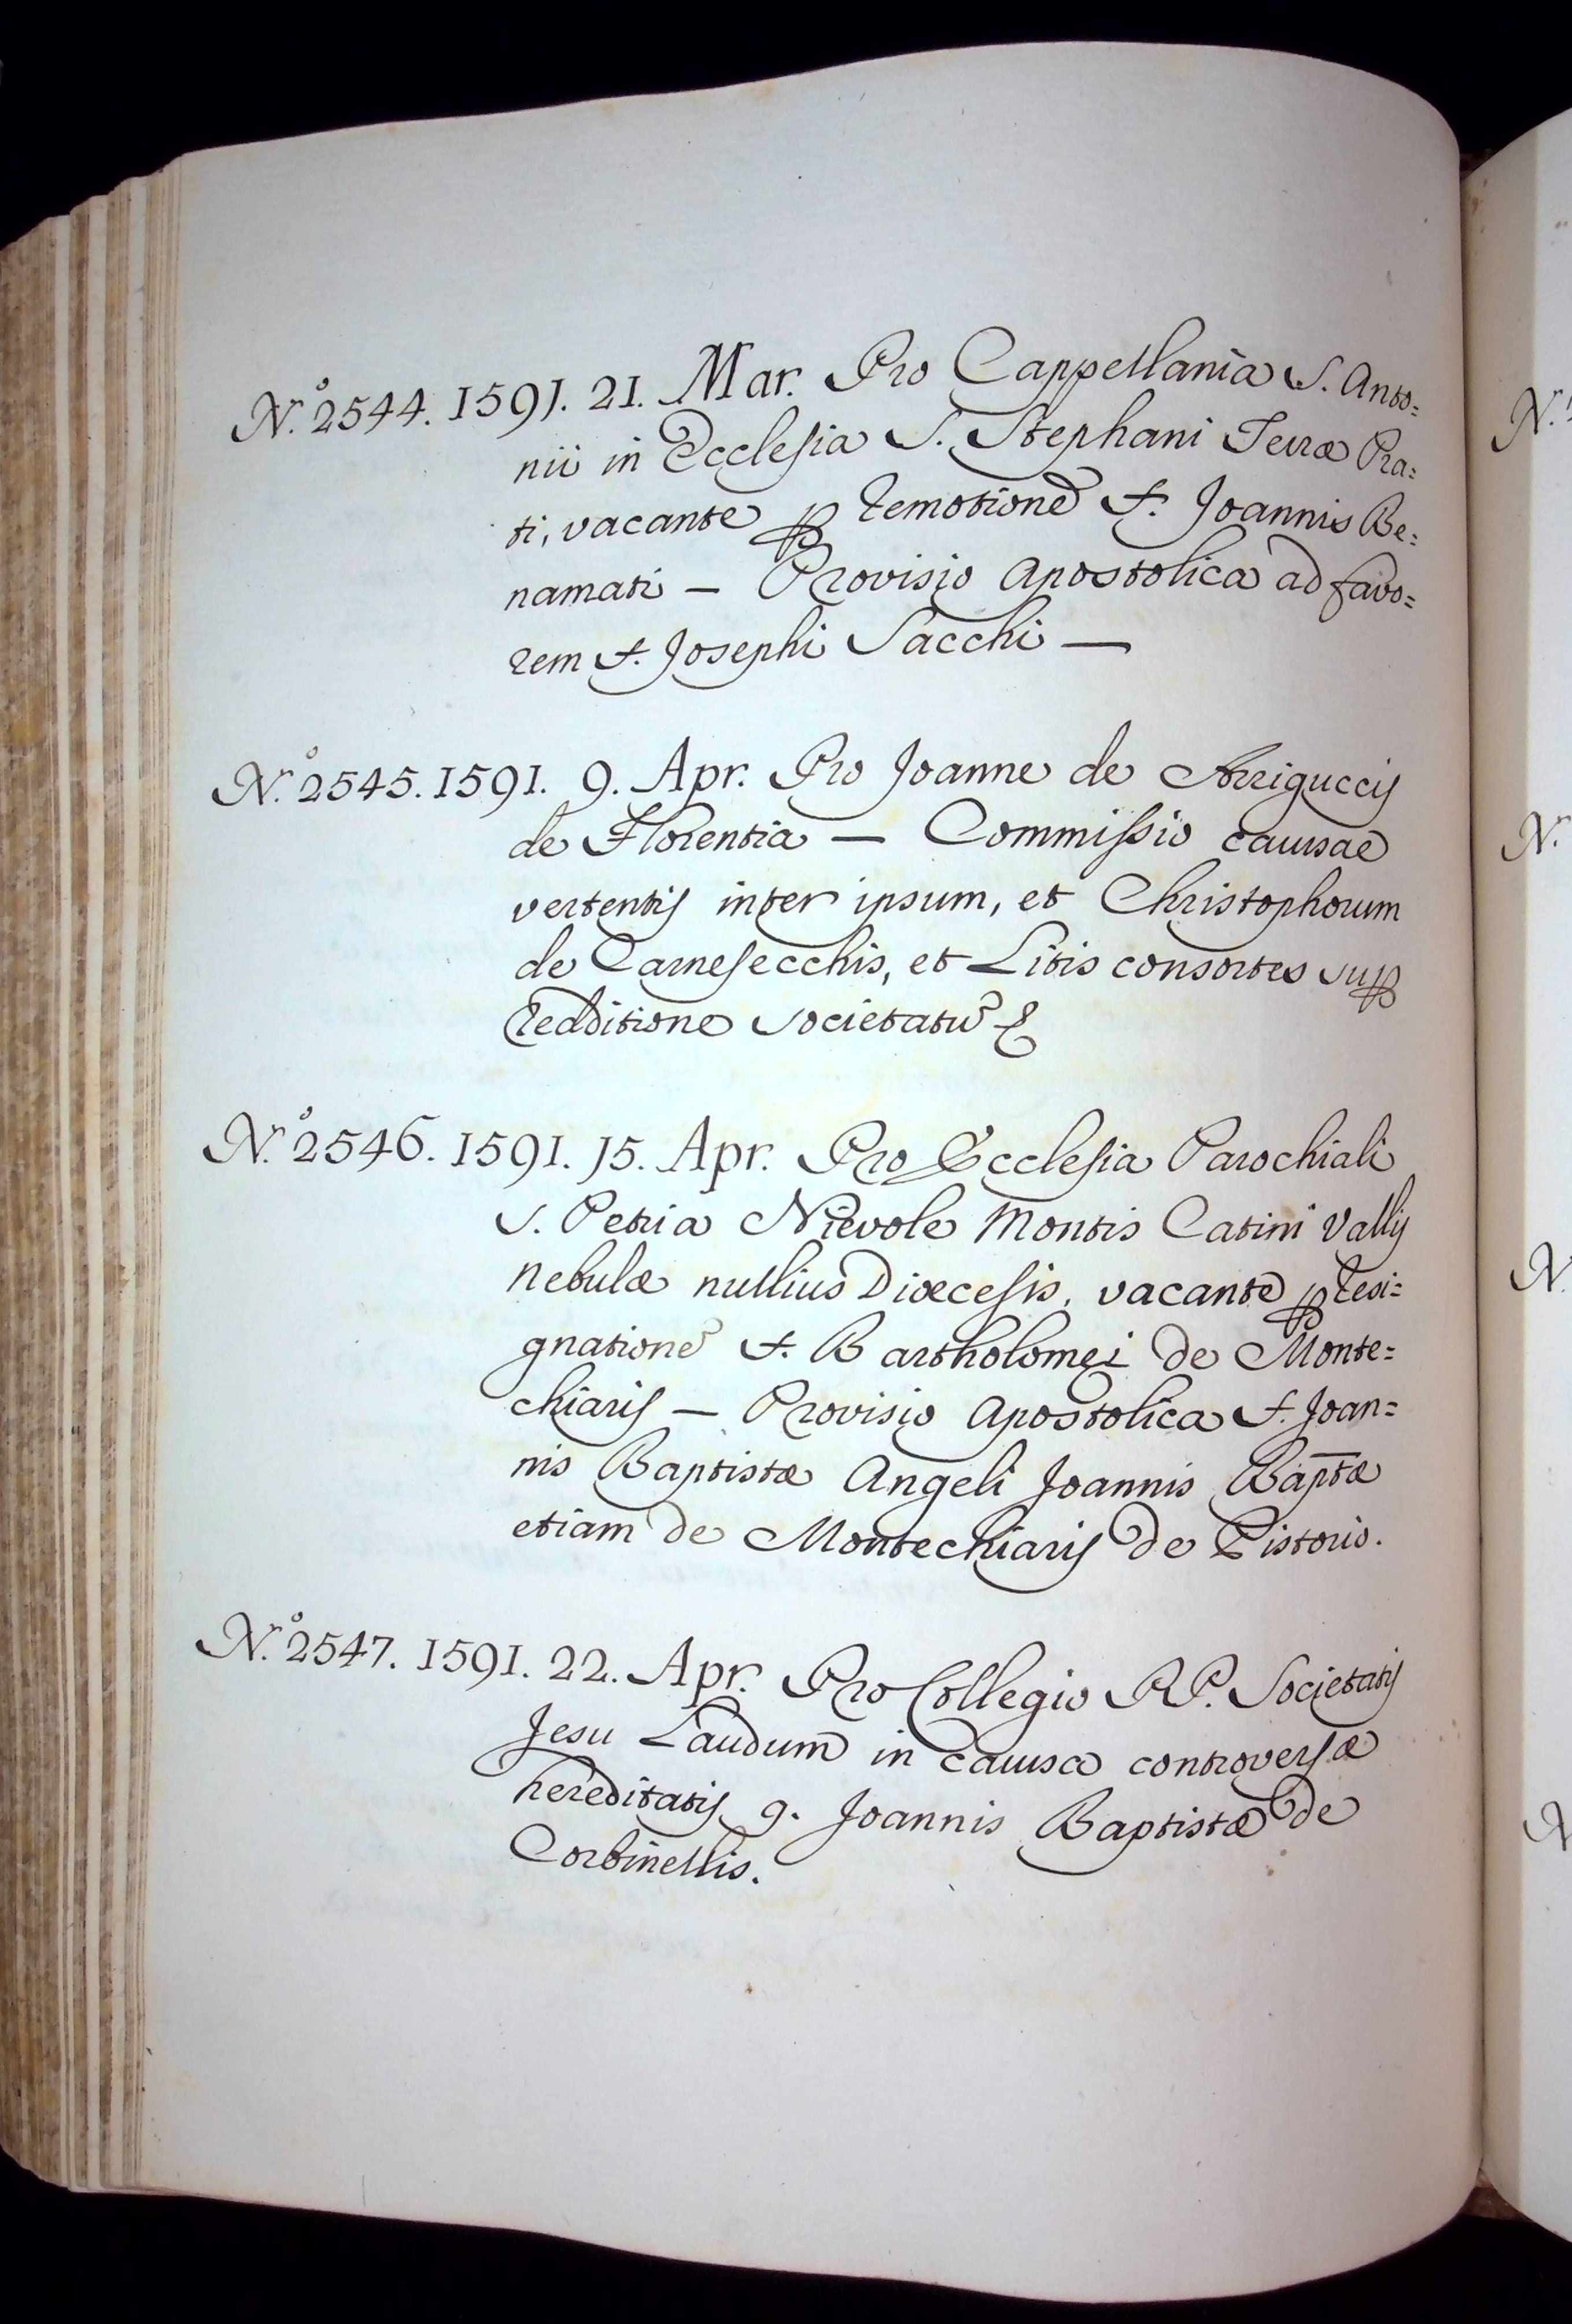 N.º 2544. 1591. 21. Mar. Pro Cappellania S. Anto=
nii in Ecclesia S. Stephani Terræ Pra=
ti, vacante p remotione f. Joannis Be=
namati — Provisio Apostolica ad favo=
rem f. Josephi Sacchi —
N.º 2545. 1591. 9. Apr. Pro Joanne de Arriguccijs
de Florentia — Commissio causae
vertentis inter ipsum, et Christophorum
de Carnesecchis, et Litis consortes supp
redditione societatu &
N.º 2546. 1591. 15. Apr. Pro Ecclesia Parochiali
S. Petri a Nievole Montis Catini Vallis
nebulæ nullius Diœcesis, vacante p resi=
gnatione f. Bartholomei de Monte=
chiaris — Provisio Apostolica f. Joan=
nis Baptistæ Angeli Joannis Baptæ
etiam de Montechiaris de Pistorio.
N.º 2547. 1591. 22. Apr. Pro Collegio RP. Societatis
Jesu Laudum in causa controversæ
hereditatis q. Joannis Baptistæ de
Corbinellis.
N.
N.
N.
N